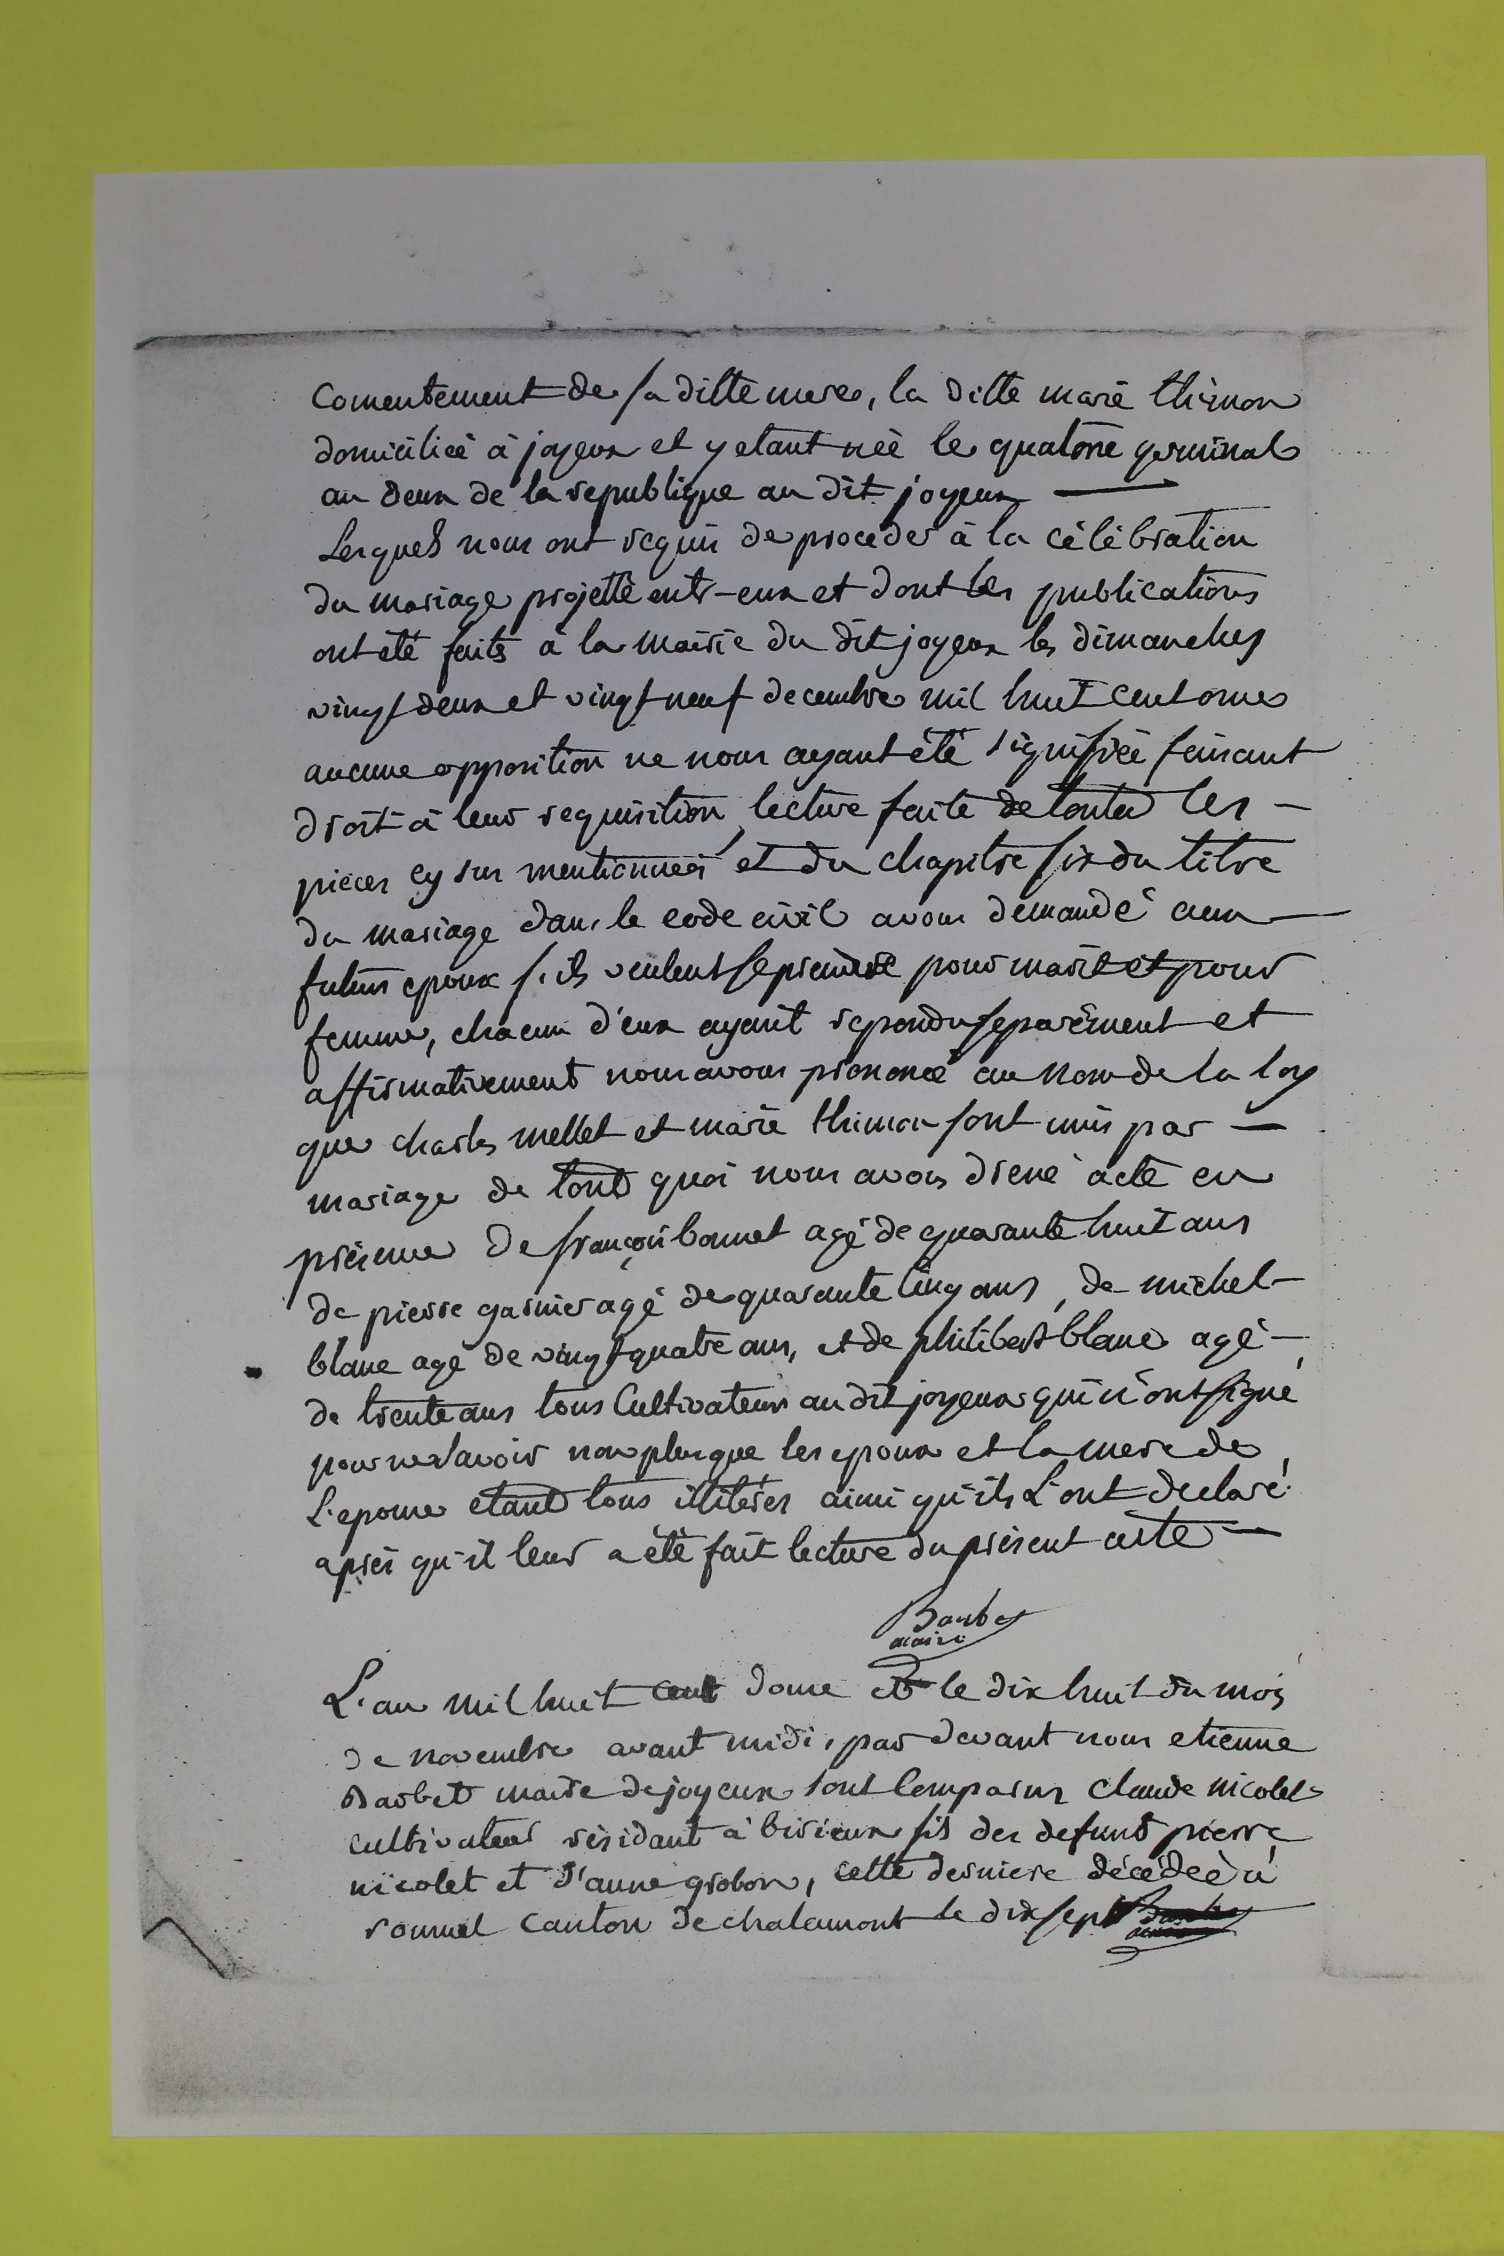 consentement de sa ditte mere, la ditte marie thimon
domiciliée à joyeux et y etant née le quatorze germinal
an deux de la republique au dit joyeux
Lesquels nous ont requis de proceder à la célébration
du mariage projetté entr-eux et dont les publications
ont été faits à la mairie du dit joyeux les dimanches
vingt deux et vingt neuf decembre mil huit cent onze
aucune opposition ne nous ayant été signifiée faisant
droit à leur requisition, lecture faite de toutes les -
pieces cy sus mentionnées et du chapitre six du titre
du mariage dans le code civil avons demandé aux
futurs epoux s'ils veulent se prendre pour mari et pour
femme, chacun d'eux ayant repondu separément et
affirmativement nous avons prononcé au nom de la loy
que charles mellet et marie thimon sont unis par
mariage de tout quoi nous avons dressé acte en
présence de françois bonnet agé de quarante huit ans
de pierre garnier agé de quarante cinq ans, de michel
blanc agé de vingt quatre ans, et de philibert blanc agé
de trente ans tous Cultivateurs au dit joyeux qui n'ont signé
pour ne savoir non plus que les epoux et la mere de
L'epouse etant tous illitérés ainsi qu'ils L'ont declaré
après qu'il leur a été fait lecture du présent acte
Barbet
maire
L'an mil huit cent douze et le dix huit du mois
de novembre avant midi, par devant nous etienne
Barbet maire de joyeux sont Comparus Claude nicolet
cultivateur résidant à birieux fils des defunts pierre
nicolet et d'anne grobon, cette derniere décédée à
ronzuel Canton de chalamont le dix sept Barbet
maire